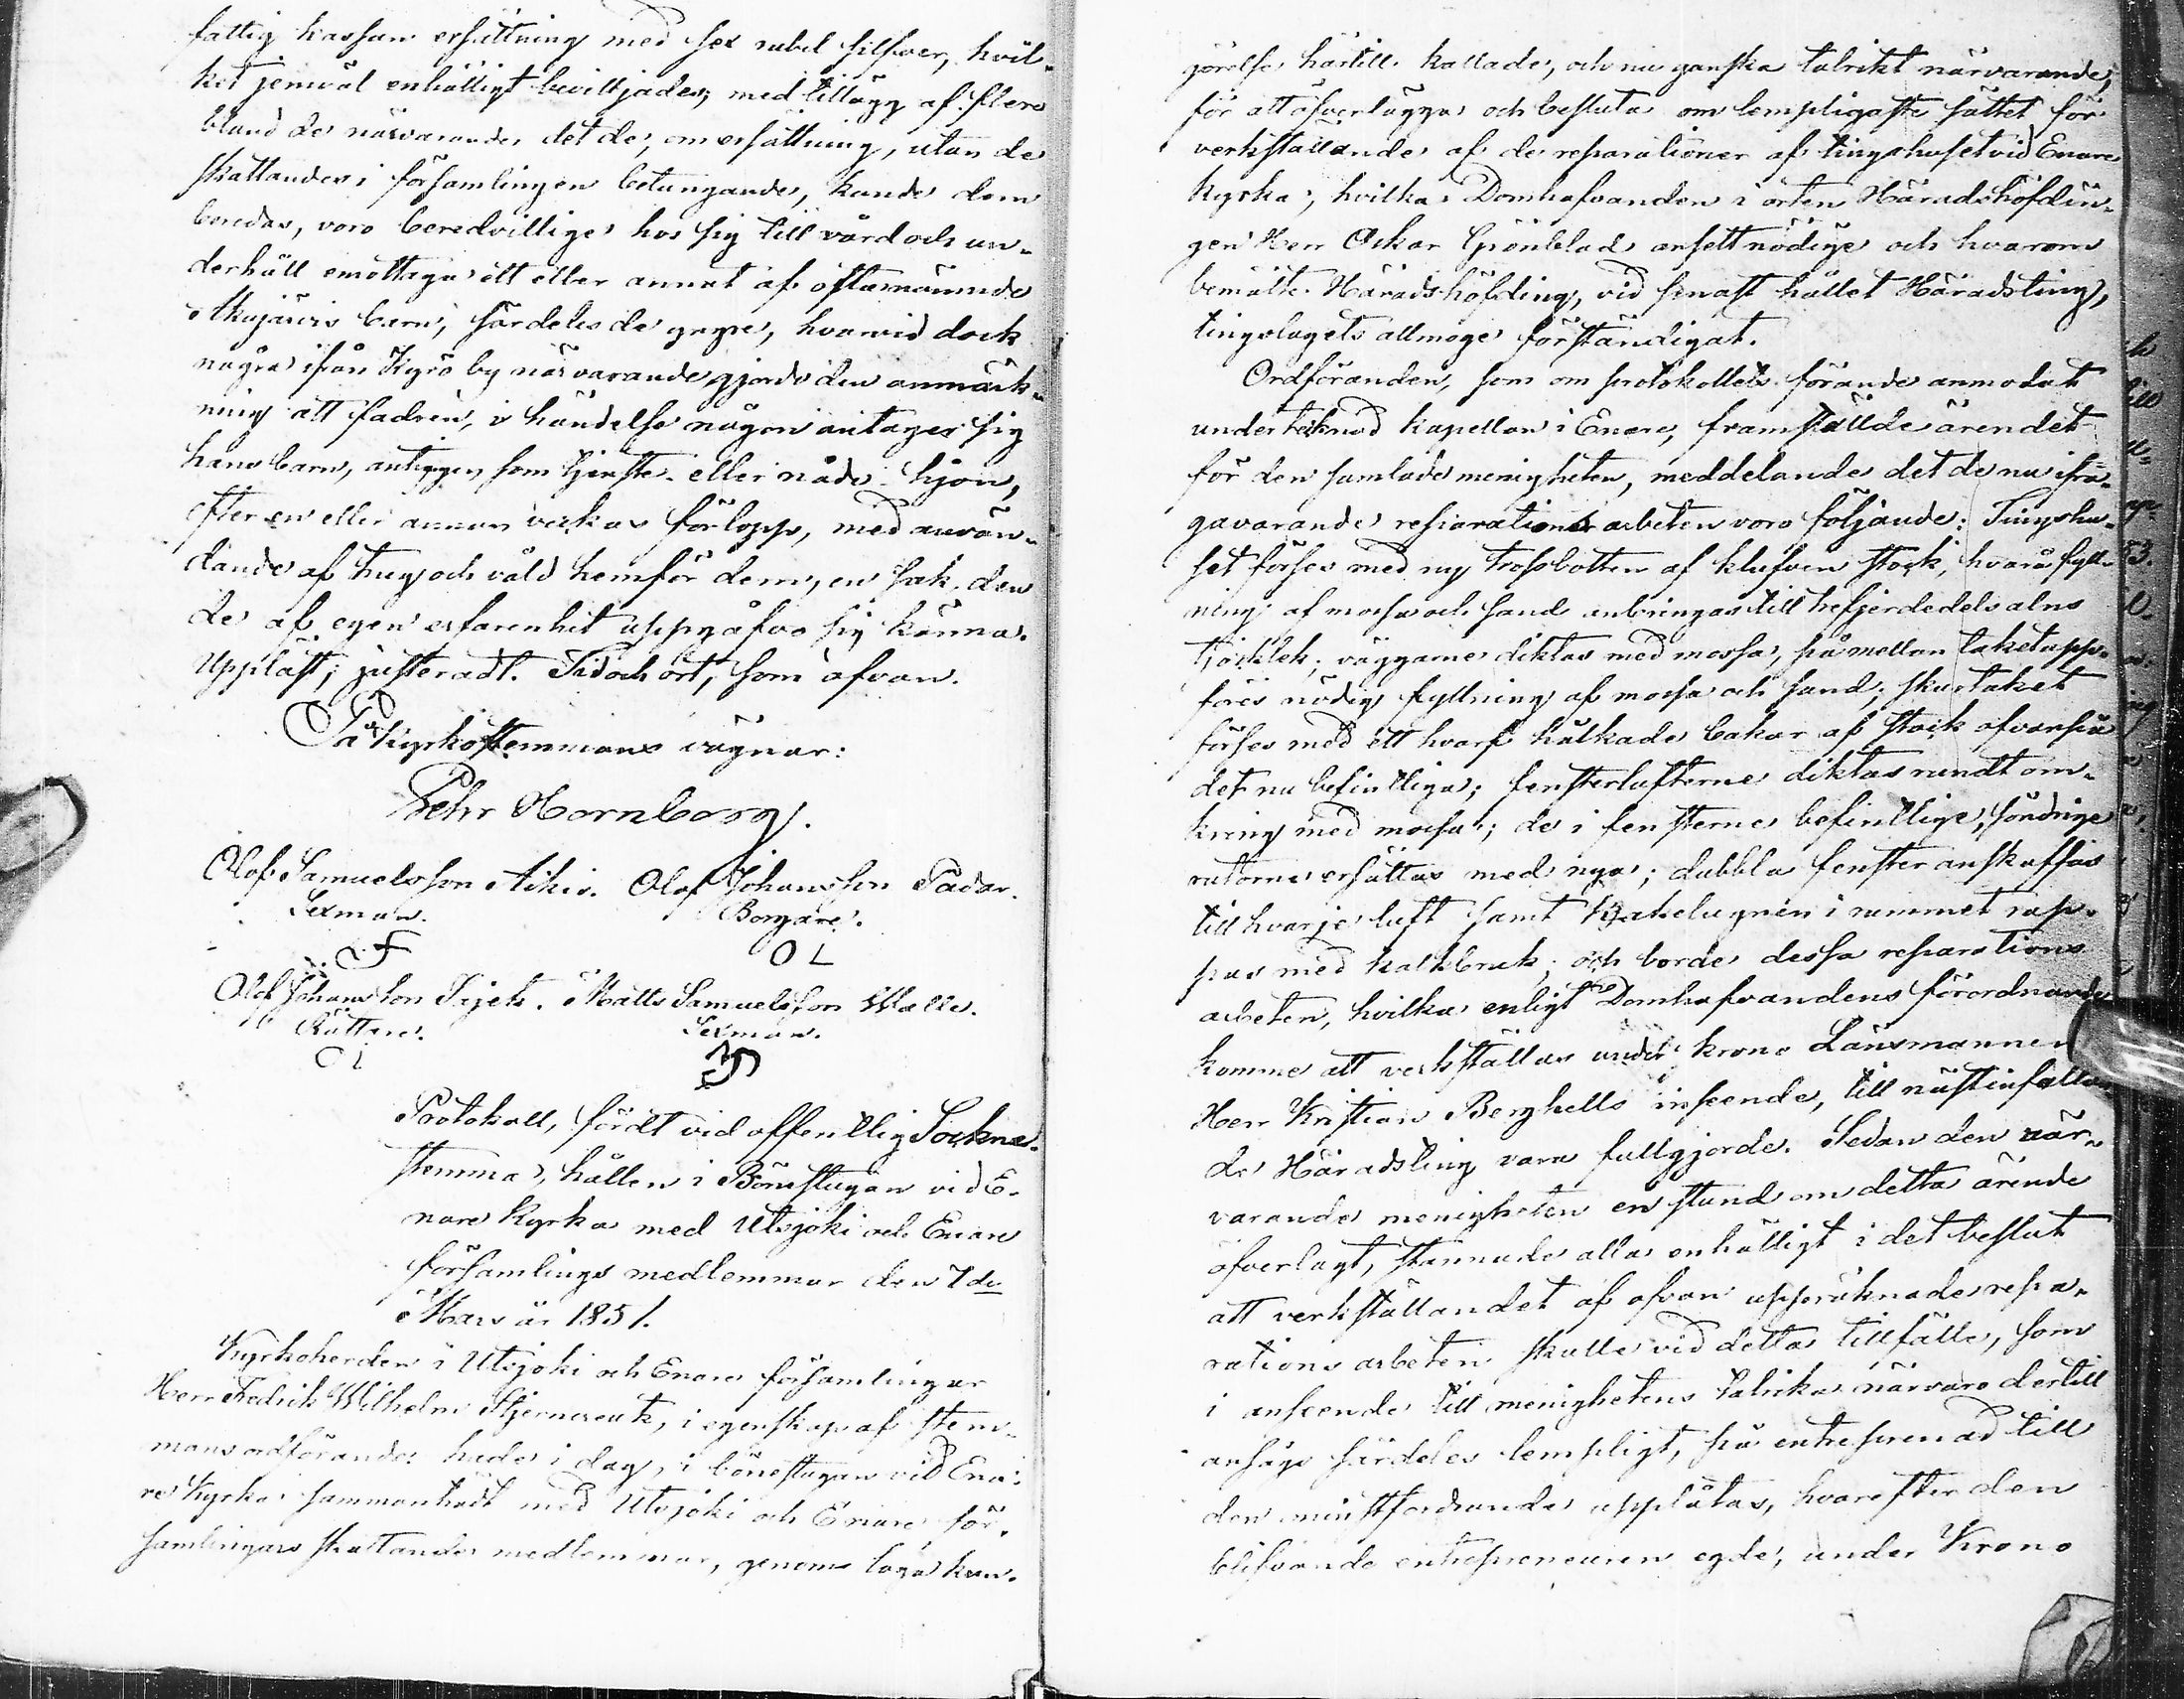 fattig kassan ersättning med sex rubel silfver, hvil-
ket jemväl enhälligt beviljades; med tillägg af flere
bland de närvarande, det de, om ersättning, utan de
skattandes i församlingen betungande, kunde dem
beredas, voro beredvillige hos sig till vård och un-
derhåll emottaga ett eller annat af oftanämnde
Akujärvis barn, särdeles de yngre, hvarvid dock
några ifrån Kyrö by närvarande gjorde den anmärk-
ning att fadren, i händelse någon antager sig
hans barn, antingen som tjenste- eller nåde-hjon,
efter en eller annan veckas förlopp, med använ-
dande af hug och våld hemför dem, en sak, den
de af egen erfarenhet uppgåfvo sig känna.
Uppläst, justeradt. Tid och ort, som ofvan.
På Kyrkostemmans vägnar:
Pehr Hornborg.
Olof Samuelsson Aikio. Olof Johansson Padar.
Sexman. Borgare.
OL
Olof Johansson Kyrö. Matts Samuelsson Walle.
Rättare. Sexman.
Protokoll, fördt vid offentlig Sockne-
stemma, hållen i Bönestugan vid E-
nare Kyrka med Utsjoki och Enare
församlings medlemmar den 7de
Mars år 1851.
Kyrkoherden i Utsjoki och Enare församlingar
Herr Fredrik Wilhelm Stjerncreutz, i egenskap af stem-
mans ordförande hade i dag, i bönestugan vid Ena-
re Kyrka sammanträdt med Utsjoki och Enare för-
samlingars skattande medlemmar, genom laga kun-
görelse härtill kallade, och nu ganska talrikt närvarande,
för att öfverlägga och besluta om lempligaste sättet för
verkställande af de reparationer af tingshuset vid Enare
kyrka, hvilka Domhafvanden i orten Häradshöfdin-
gen Herr Oskar Grönblad ansett nödige och hvarom
bemälte Häradshöfding, vid senast hållet Häradsting,
tingslagets allmoge förständigat.
Ordföranden, som om protokollets förande anmodat
undertecknad kapellan i Enare, framställde ärendet
för den samlade menigheten, meddelande det de nu ifrå-
gavarande reparations arbeten voro följande: Tingshu-
set förses med ny trossbotten af klufven stock, hvarå fyll-
ning af mossa och sand anbringas till trefjerdedels alns
tjocklek; väggarne diktas med mossa, på mellan taket upp-
föres nödig fyllning af mossa och sand; skurtaket
förses med ett hvarf hålkade bakar af stock ofvanpå
det nu befintliga; fensterlufterne diktas rundt om-
kring med mossa; de i fensterne befintlige, söndrige
rutorne ersättas med nya; dubbla fenster anskaffas
till hvarje luft samt kakelugnen i rummet rap-
pas med kalkbruk; och borde dessa reparations
arbeten, hvilka enligt Domhafvandens förordnande
komme att verkställas under krono Länsmannen
Herr Kristian Berghells inseende, till nästinfallan
de Häradsting vara fullgjorde. Sedan den när-
varande menigheten en stund om detta ärende
öfverlagt, stannade alla enhälligt i det beslut
att verkställandet af ofvan uppräknade repa-
rations arbeten skulle vid detta tillfälle, som
i anseende till menighetens talrika närvaro dertill
ansågs särdeles lempligt, på entreprenad till
den minstfordrande upplåtas, hvarefter den
blifvande entrepreneuren egde, under Krono